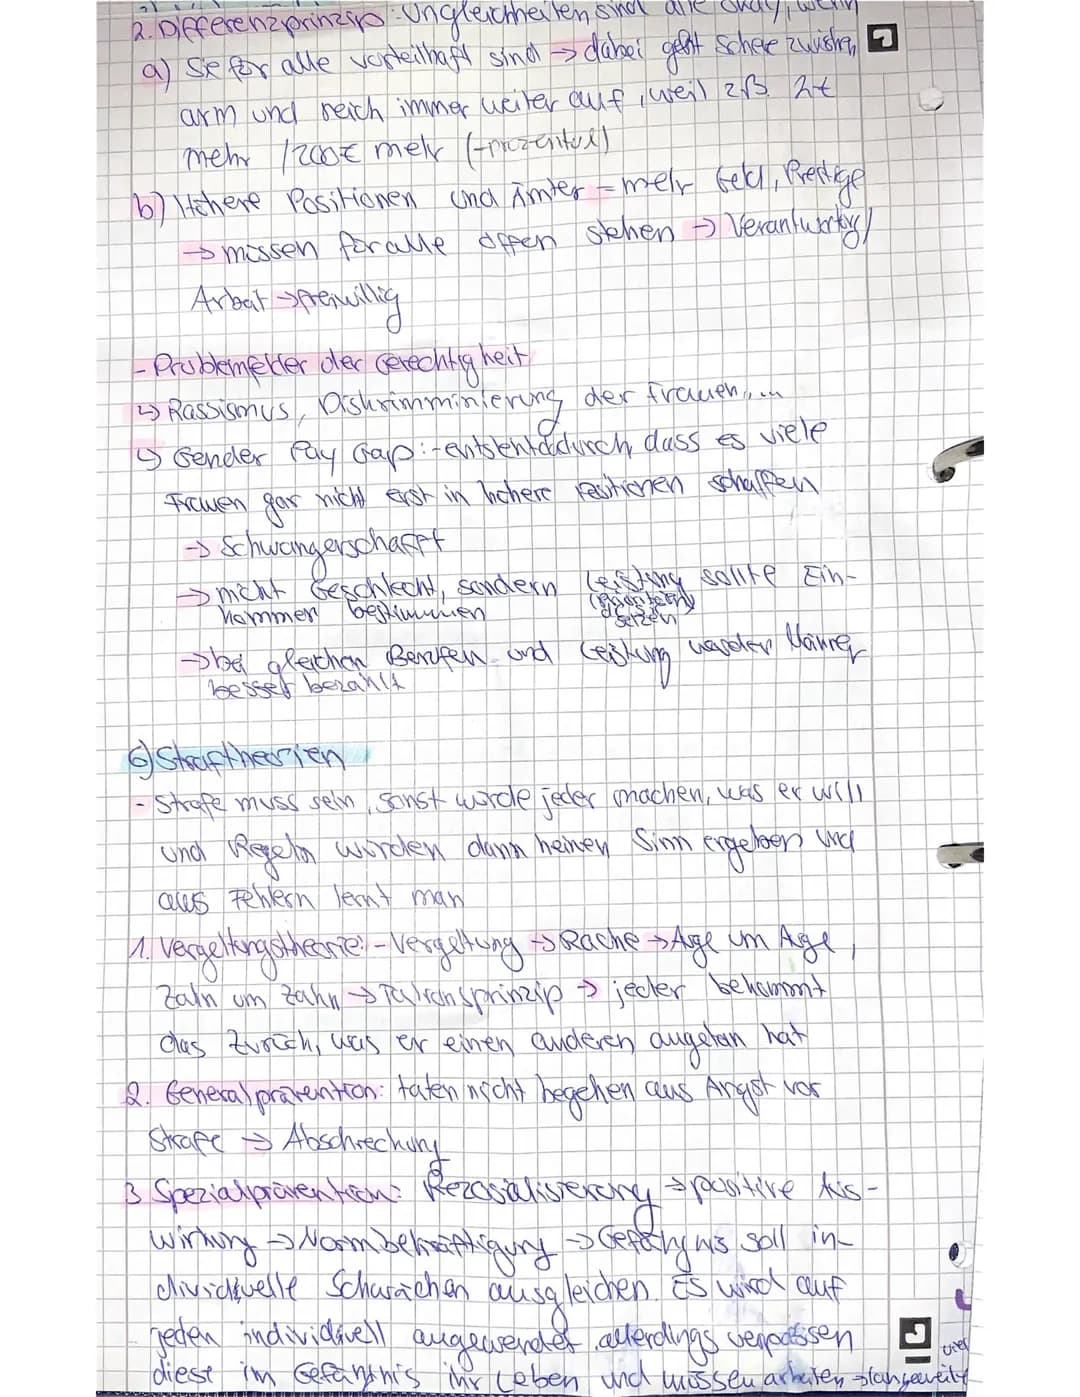 2. Differenzprinzip: Ungleichheiten sind alle okay, wenn
a) Sie für alle vorteilhaft sind → dabei geht Schere zwischen
arm und reich immer weiter auf, weil z.B. 2€
mehr /200€ mehr (-prozentual)
b) Höhere Positionen und Ämter = mehr Geld, Prestige
→ müssen für alle offen stehen →
Arbeit → freiwillig
- Problemfelder der Gerechtigkeit
↳ Rassismus, Diskrimminierung der Frauen,...
↳ Gender Pay Gap: - entsteht dadurch dass es viele
Frauen gar nicht erst in höhere Positionen schaffen
→ Schwangerschafft
→ nicht Geschlecht, sondern Leistung sollte Ein-
kommen bestimmen
setzen
→ bei gleichen Berufen und Leistung werden Männer
besser bezahlt
6) Straftheorien
- Strafe muss sein, sonst würde jeder machen, was er will
und Regeln würden dann keinen Sinn ergeben und
aus Fehlern lernt man
1. Vergeltungstheorie: - Vergeltung → Rache → Auge um Auge,
Zahn um Zahn → Talionsprinzip → jeder bekommt
das zurück, was er einen anderen angetan hat
2. Generalprävention: taten nicht begehen aus Angst vor
Strafe → Abschreckung
3. Spezialprävention: Rezosialisierung → positive Aus-
wirkung → Normbekräftigung → Gefängnis soll in-
dividuelle Schwächen ausgleichen. Es wird auf
jeden individuell angewendet, allerdings verpassen
diese im Gefängnis ihr Leben und müssen arbeiten → langeweile